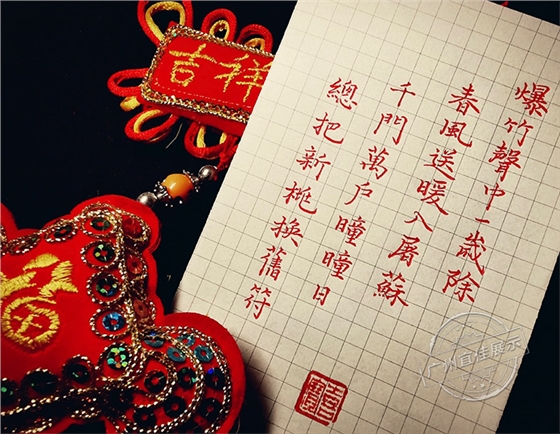 吉祥
福
爆竹聲中一歲除
春風送暖入屠蘇
千門萬户曈曈日
總把新桃換舊符
广州宜佳展示